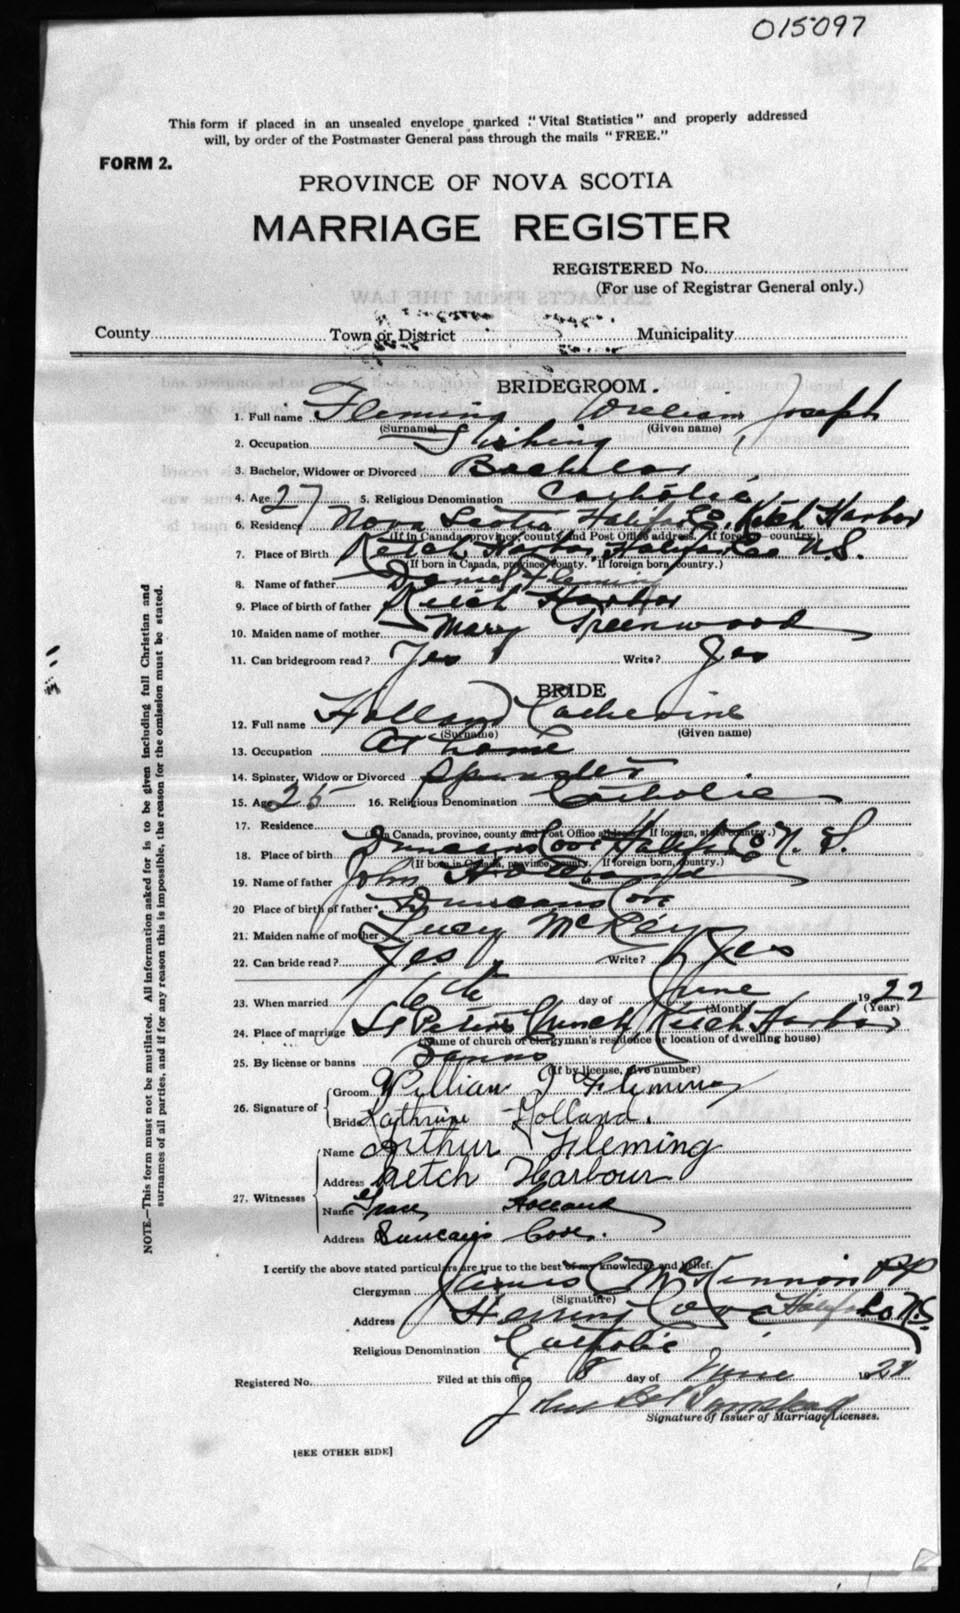 015097
This form if placed in an unsealed envelope marked "Vital Statistics" and properly addressed
will, by order of the Postmaster General pass through the mails "FREE."
FORM 2.
PROVINCE OF NOVA SCOTIA
MARRIAGE REGISTER
REGISTERED No.
(For use of Registrar General only.)
County Town or District Municipality
BRIDEGROOM.
1. Full name Fleming William Joseph
(Surname) (Given name)
2. Occupation Fishing
3. Bachelor, Widower or Divorced Bachelor
4. Age 27 5. Religious Denomination Catholic
6. Residence Nova Scotia Halifax Co. Ketch Harbor
(If in Canada, province, county and Post Office address. If foreign country)
7. Place of Birth Ketch Harbor Halifax Co N.S.
(If born in Canada, province, county. If foreign born, country.)
8. Name of father Daniel Fleming
9. Place of birth of father Ketch Harbor
10. Maiden name of mother Mary Greenwood
11. Can bridegroom read? Yes Write? Yes
BRIDE
12. Full name Holland Catherine
(Surname) (Given name)
13. Occupation At home
14. Spinster, Widow or Divorced Spinster
15. Age 25 16. Religious Denomination Catholic
17. Residence
(In Canada, province, county and Post Office address. If foreign, state country.)
18. Place of birth Duncans Cove Halifax Co N. S.
(If born in Canada, province, county. If foreign born, country.)
19. Name of father John Holland
20 Place of birth of father Duncans Cove
21. Maiden name of mother Lucy McKey
22. Can bride read? Yes Write? Yes
23. When married 6th day of June 1922
(Month) (Year)
24. Place of marriage St Peters Church Ketch Harbor
(Name of church or clergyman's residence or location of dwelling house)
25. By license or banns Banns
(If by license, give number)
26. Signature of
Groom William J Fleming
Bride Kathrine Holland.
27. Witnesses
Name Arthur Fleming
Address Ketch Harbour
Name Holland
Address Duncan's Cove.
I certify the above stated particulars are true to the best of my knowledge and belief.
Clergyman James C McKinnon PP
(Signature)
Address Herring Cove Halifax Co N.S.
Religious Denomination Catholic
Registered No. Filed at this office 8 day of June 192
John
Signature of Issuer of Marriage Licenses.
[SEE OTHER SIDE]
NOTE.—This form must not be mutilated. All information asked for is to be given including full Christian and
surnames of all parties, and if for any reason this is impossible, the reason for the omission must be stated.